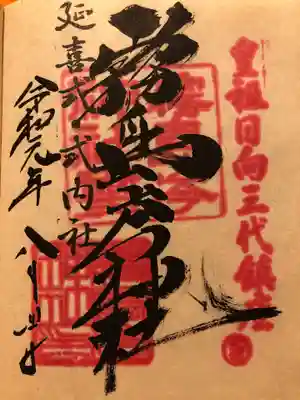 皇祖日向三代鎮座
霧島岑神社
延喜式式内社
令和元年八月